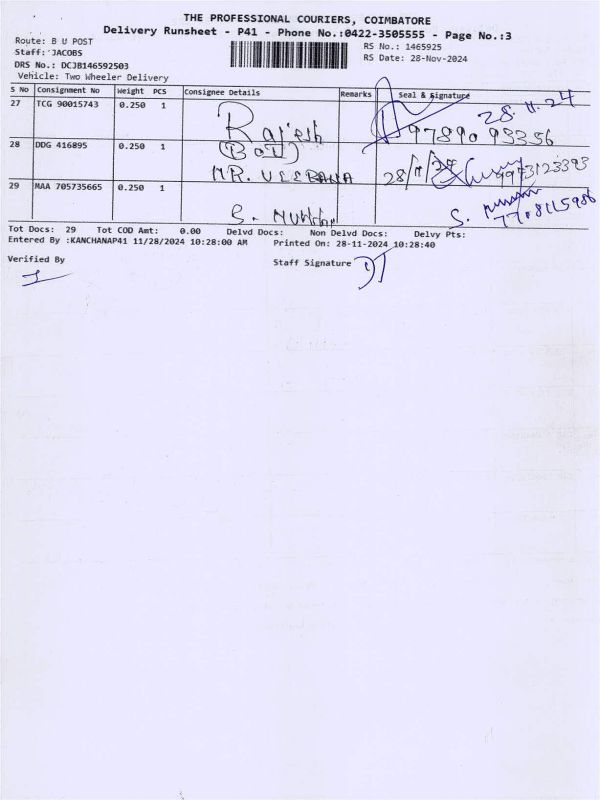 THE PROFESSIONAL COURIERS, COIMBATORE
Delivery Runsheet - P41 - Phone No.:0422-3505555 - Page No.:3
Route: B U POST
RS No.: 1465925
Staff: JACOBS
RS Date: 28-Nov-2024
DRS No.: DCJB146592503
Vehicle: Two Wheeler Delivery
S No Consignment No Weight PCS Consignee Details Remarks Seal & Signature
27 TCG 90015743 0.250 1 Rajesh 28.11.24
97890 93356
28 DDG 416895 0.250 1 (BOI)
MR. VEERANA 28/11/24
29 MAA 705735665 0.250 1
S.
S.
Tot Docs: 29 Tot COD Amt: 0.00 Delvd Docs: Non Delvd Docs: Delvy Pts:
Entered By :KANCHANAP41 11/28/2024 10:28:00 AM Printed On: 28-11-2024 10:28:40
Verified By Staff Signature